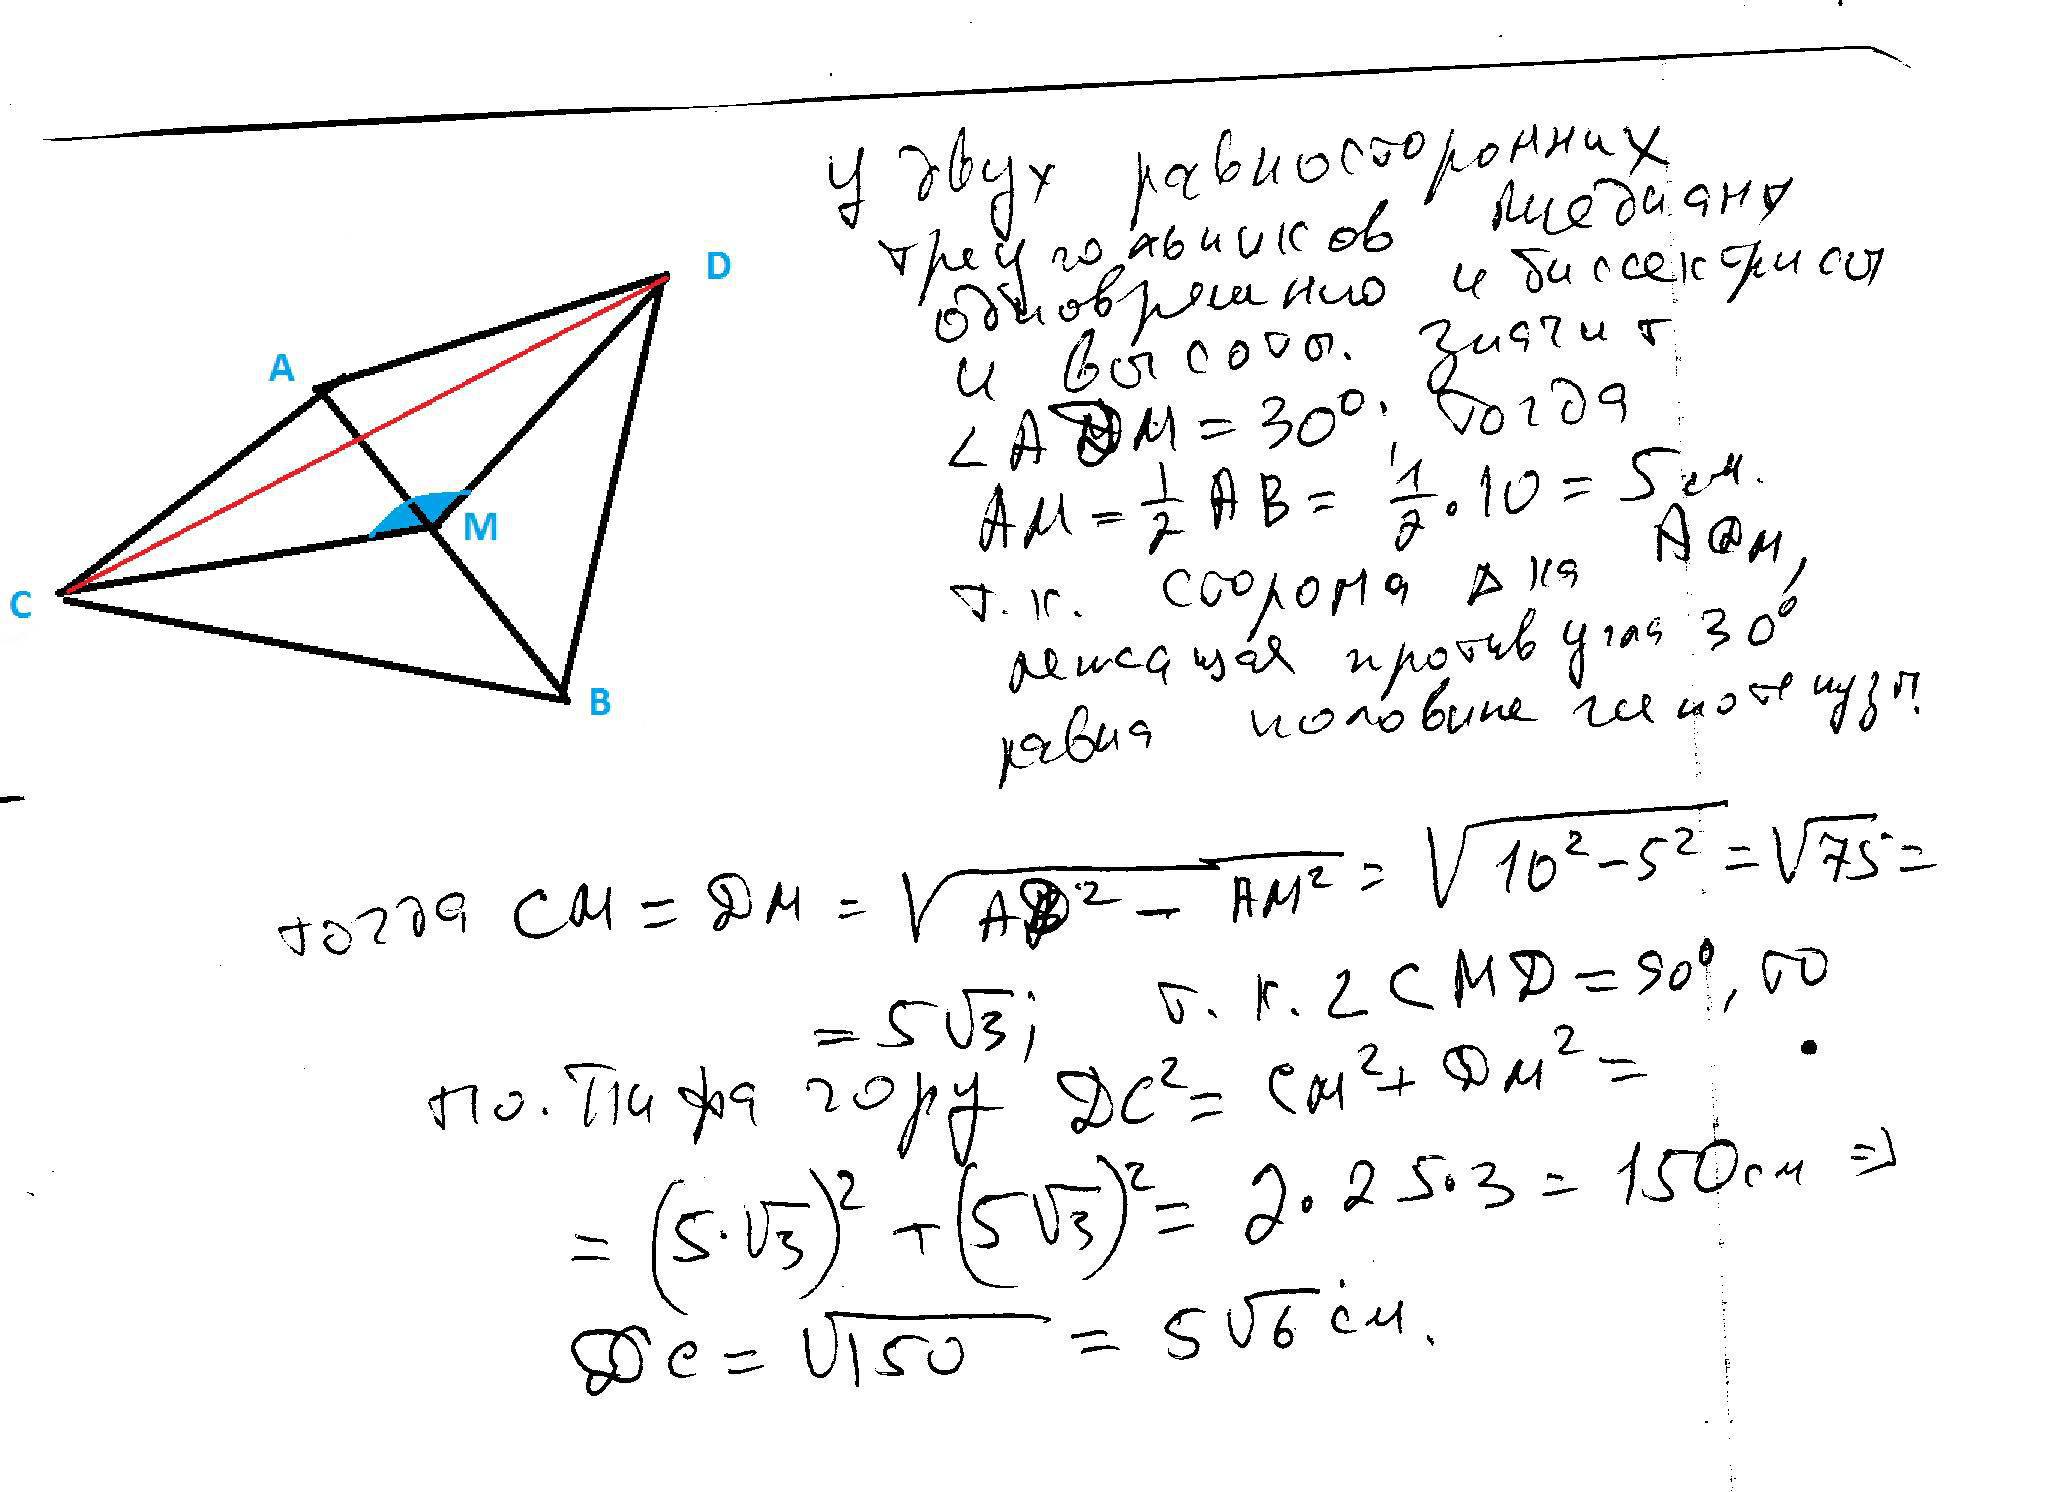 D
A
M
C
B
У двух равносторонних
треугольников медианы
одновременно и биссектрисы
и высоты. Значит
∠ADM = 30°; тогда
AM = 1/2 AB = 1/2 · 10 = 5 см.
т.к. сторона Δка ADM,
лежащая против угла 30°
равна половине гипотенузы.
тогда CM = DM = √(AD² - AM²) = √(10² - 5²) = √75 =
= 5√3; т.к. ∠CMD = 90°, то
по. Пифагору DC² = CM² + DM² =
= (5·√3)² + (5√3)² = 2·25·3 = 150 см ⇒
DC = √150 = 5√6 см.